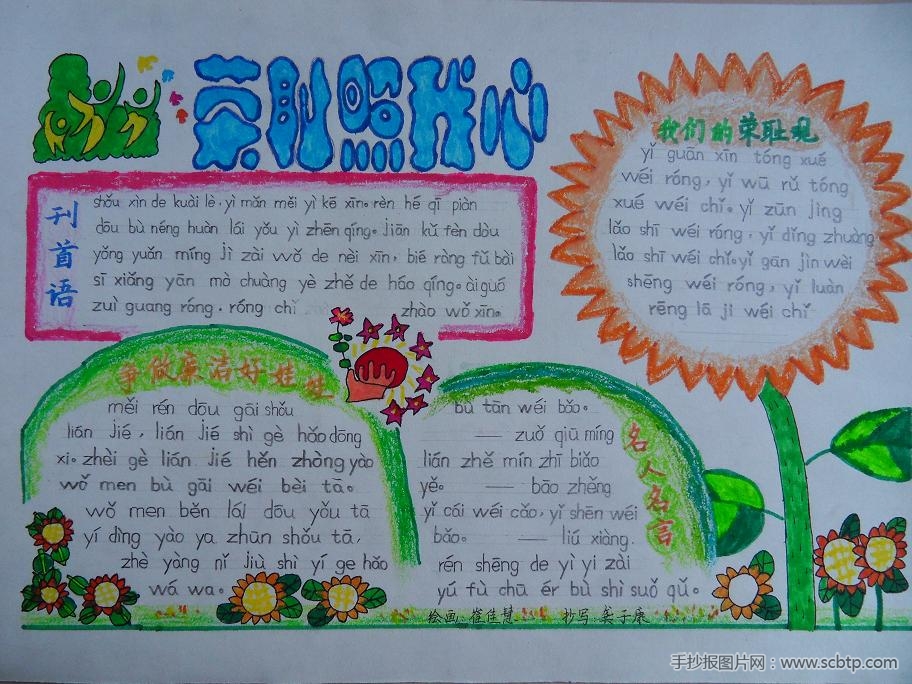 荣耻照我心
刊首语
shǒu xìn de kuài lè, yì mǎn měi yì kē xīn。rèn hé qī piàn
dōu bù néng huàn lái yǒu yì zhēn qíng。jiān kǔ fèn dòu
yǒng yuǎn míng jì zài wǒ de nèi xīn, bié ràng fǔ bài
sī xiǎng yān mò chuàng yè zhě de háo qíng。ài guó
zuì guang róng, róng chǐ zhào wǒ xīn。
我们的荣耻观
yǐ guān xīn tóng xué
wéi róng, yǐ wū rǔ tóng
xué wéi chǐ。yǐ zūn jìng
lǎo shī wéi róng, yǐ dǐng zhuàng
lǎo shī wéi chǐ。yǐ gān jìn wèi
shēng wéi róng, yǐ luàn
rēng lā jī wéi chǐ
争做廉洁好娃娃
měi rén dōu gāi shǒu
lián jié, lián jié shì gè hǎo dōng
xi。zhèi gè lián jié hěn zhòng yào
wǒ men bù gāi wéi bèi tā。
wǒ men běn lái dōu yǒu tā
yí dìng yào ya zhūn shǒu tā,
zhè yàng nǐ jiù shì yí ge hǎo
wá wa。
名人名言
bù tān wéi bǎo。
—— zuǒ qiū míng
lián zhě mín zhī biǎo
yě。 —— bāo zhěng
yǐ cái wéi cǎo, yǐ shēn wéi
bǎo。 —— liú xiàng.
rén shēng de yì yi zài
yú fù chū ér bù shì suǒ qǔ。
绘画:崔佳慧 抄写:龚子康
手抄报图片网:www.scbtp.com